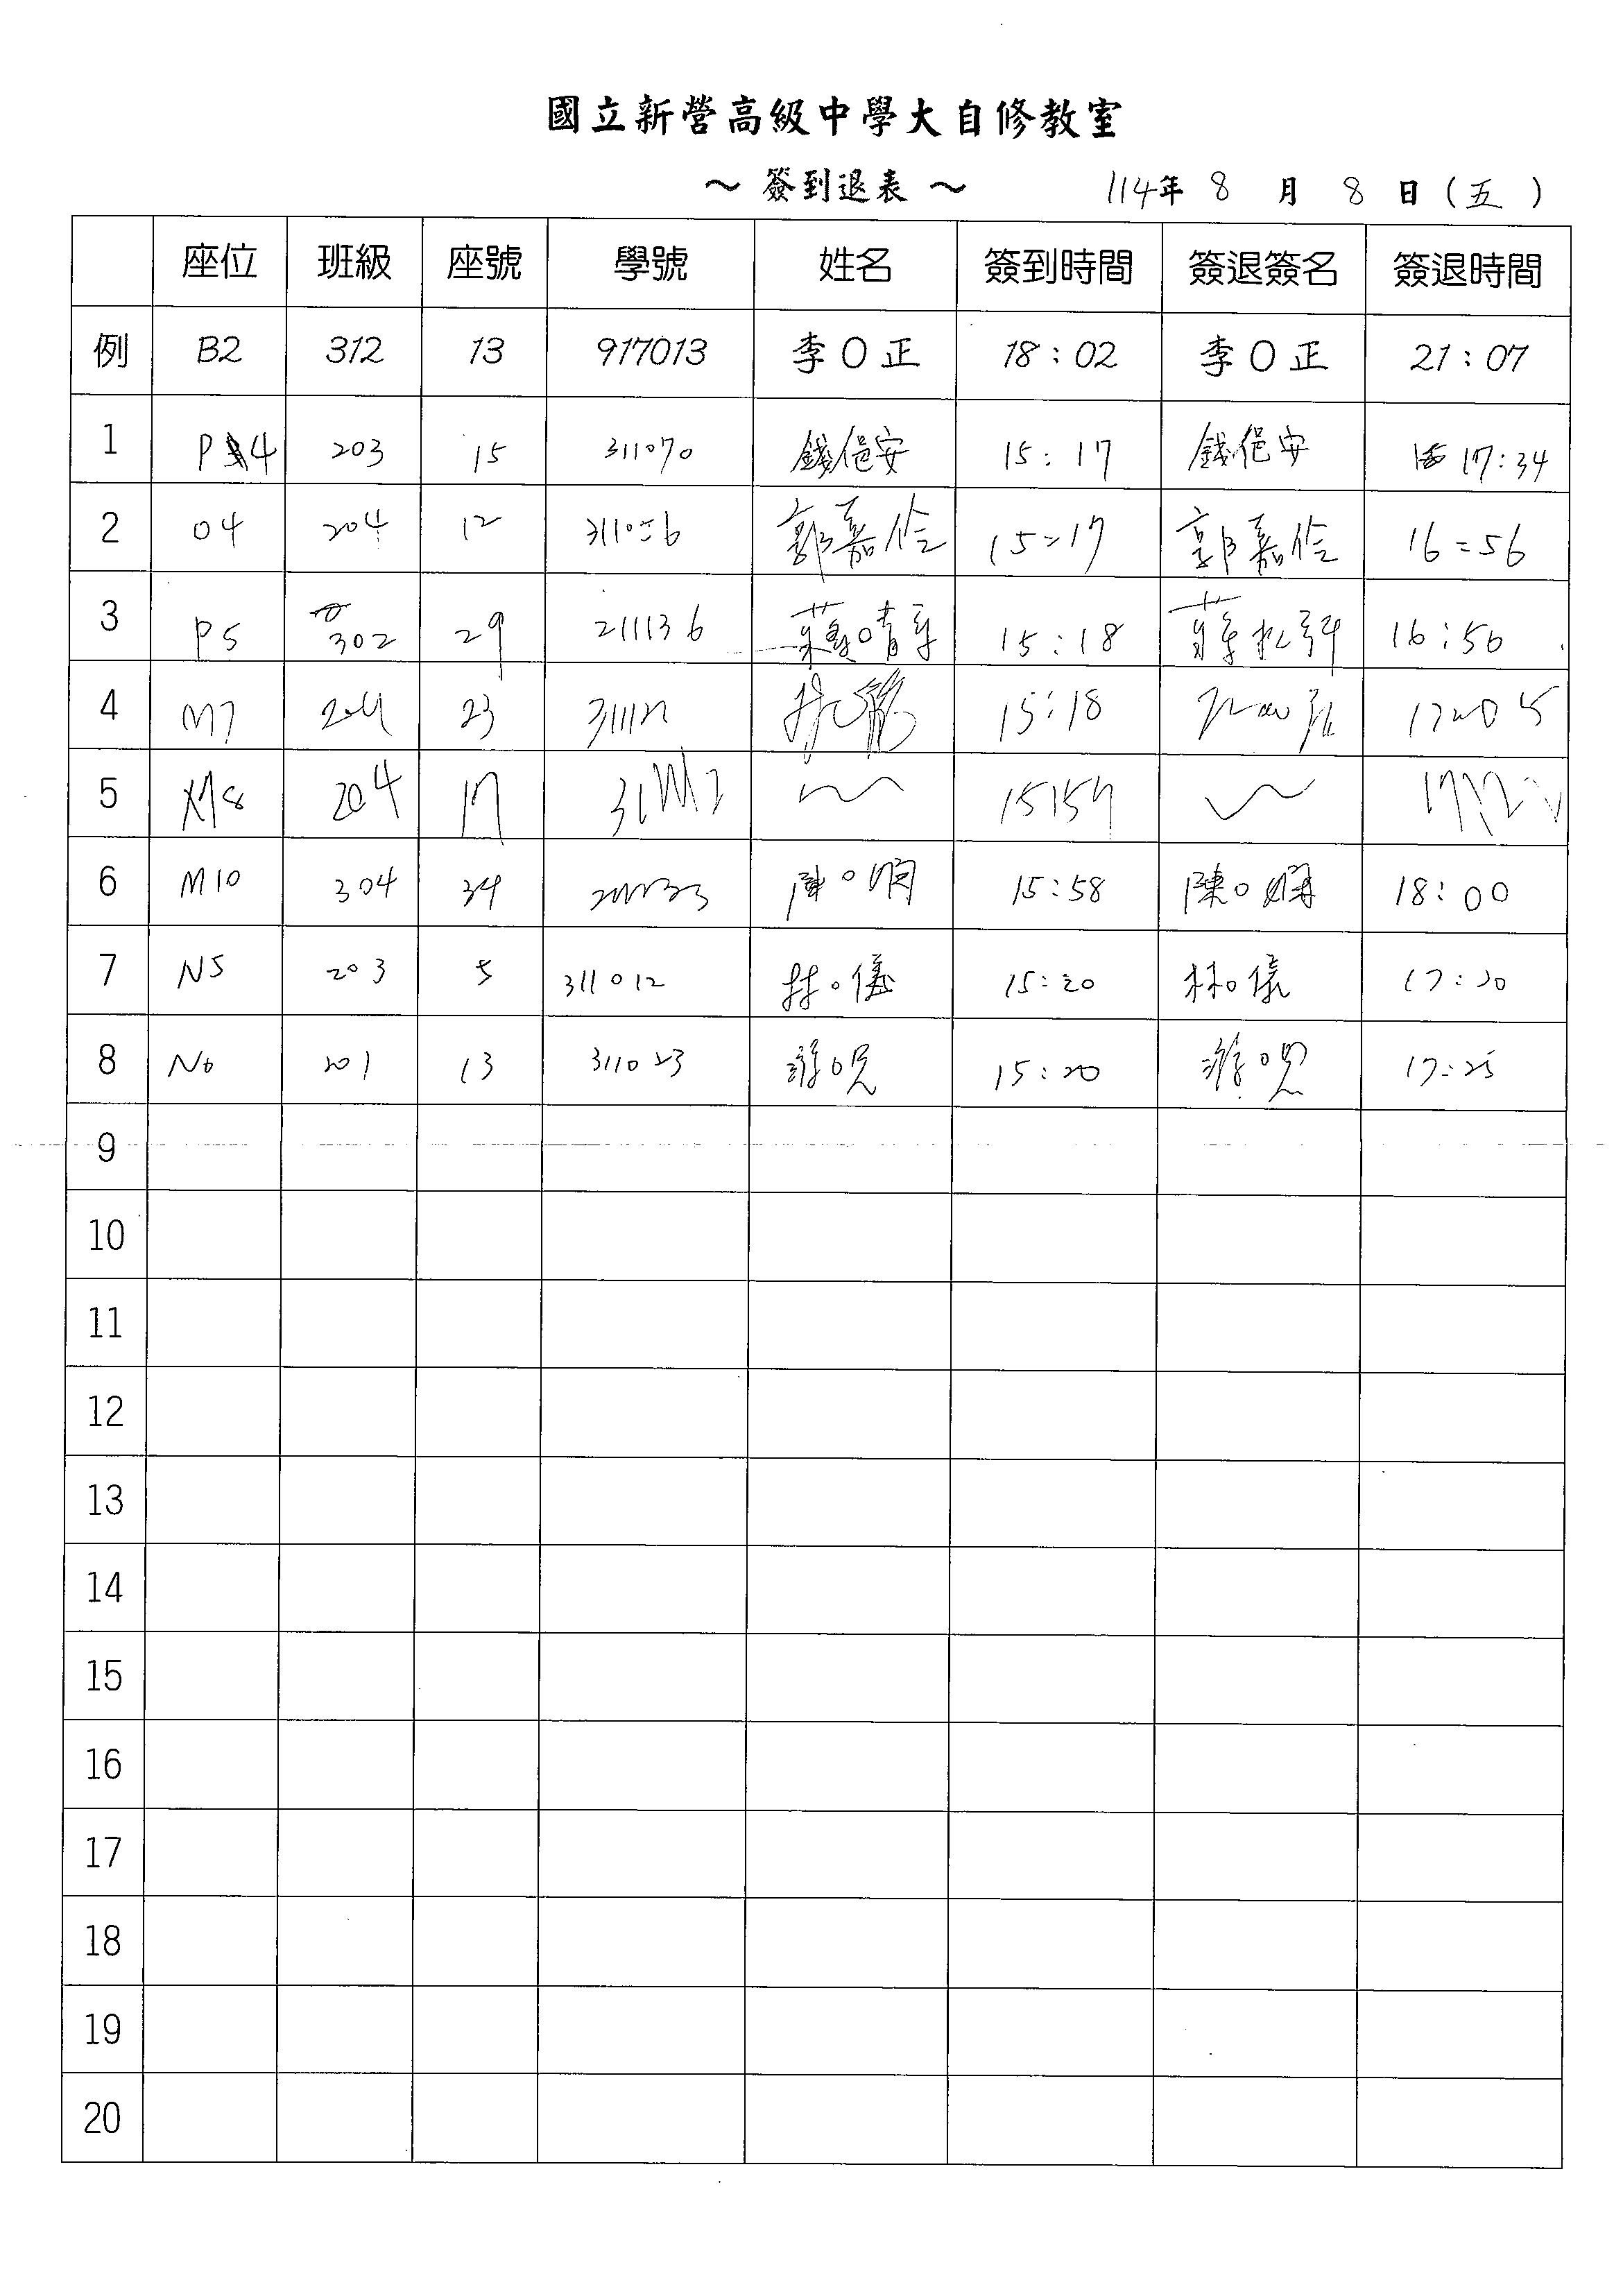 國立新營高級中學大自修教室
～ 簽到退表 ～ 114年 8 月 8 日 (五)
座位 班級 座號 學號 姓名 簽到時間 簽退簽名 簽退時間
例 B2 312 13 917013 李O正 18:02 李O正 21:07
1 P4 203 15 311070 錢俋安 15:17 錢俋安 17:34
2 04 204 12 郭嘉伶 15:17 郭嘉伶 16:56
3 P5 302 29 211136 15:18 16:56
4 M7 204 23 15:18 17:05
5 204 17
6 M10 304 34 陳O嫻 15:58 陳O嫻 18:00
7 N5 203 5 311012 林O儀 15:20 林O儀
8 N6 201 13 311023 游O 15:20 游O 17:25
9
10
11
12
13
14
15
16
17
18
19
20